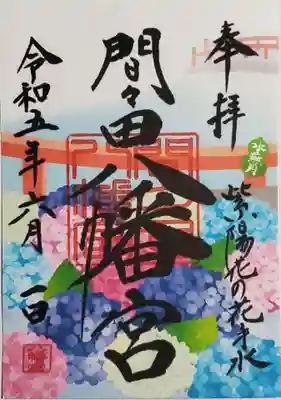 奉拝
紫陽花の花手水
間々田八幡宮
令和五年六月一日